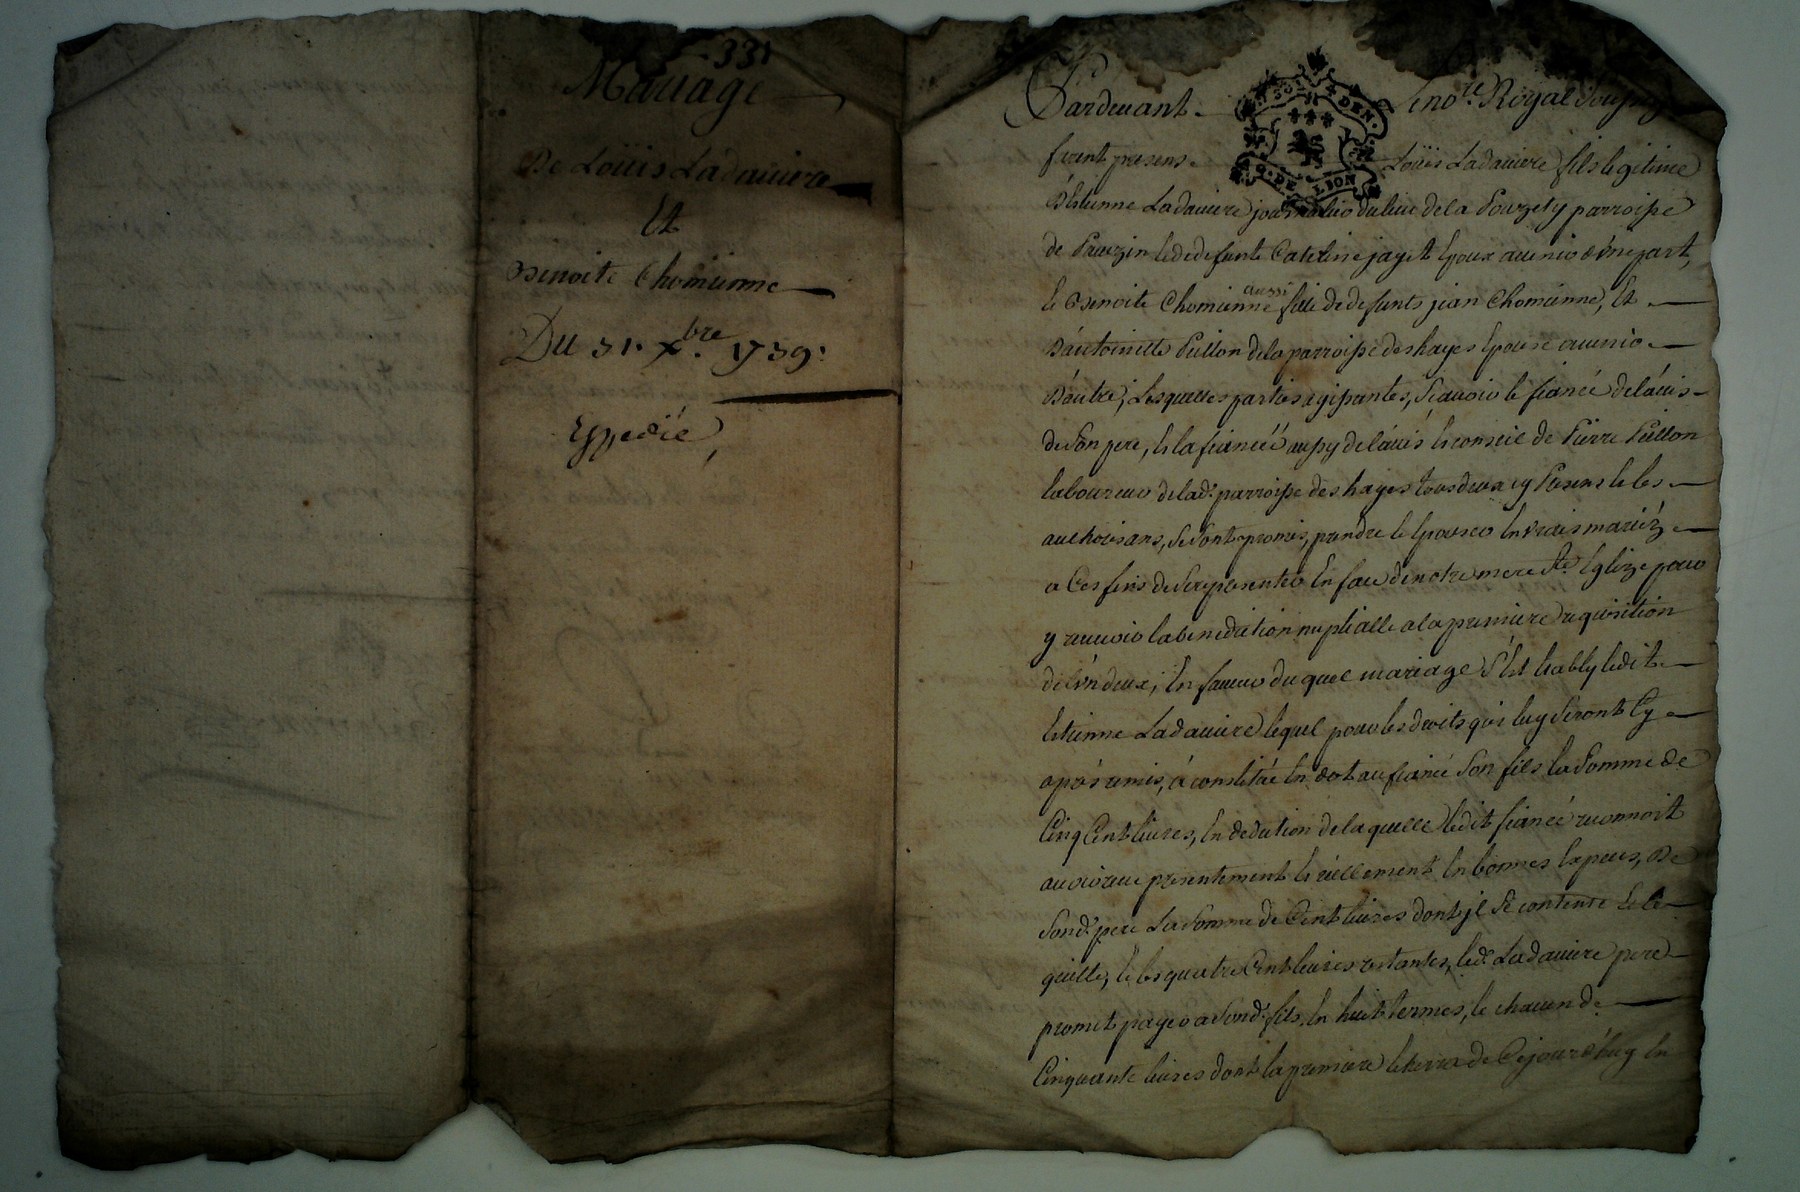 331
Mariage
De Loüis Ladaviere
Et
Benoite Chomienne
Du 31. xbre. 1739.
Expedié,
Pardevant Le nore. Royal soussig
furent presens Loüis Ladaviere fils legitime
D'Etienne Ladaviere journalier du lieu de la parroisse
de et de defunte Caterine jayet Epoux avenir d'une part,
Et Benoite Chomienne aussi fille de defunts jean Chomienne, Et
D'antoinette Pullon de la parroisse des hayes Epouse avenir
D'autre, Lesquelles parties agissantes, sçavoir le fiancé de l'avis
de son pere, Et la fiancée aussy de l'avis Et conseil de Pierre Pullon
laboureur de lad. parroisse des hayes tous deux cy Presens Et les
authorisans, se sont promis, prendre Et Epouser En vrais mariéz
a Ces fins de se representer En face de notre mere Ste. Eglize pour
y recevoir la benediction nuptialle a la premiere requisition
de l'un deux, En faveur du quel mariage s'Est Etably ledit
Etienne Ladaviere lequel pour les droits qui luy seront Cy
aprés remis, á constitüé En dot au fiancé son fils la somme de
Cinq Cent livres, En deduction de laquelle ledit fiancé reconnoit
avoir reçu presentement Et réellement En bonnes Especes, De
sond. pere La somme de Cent livres dont jl se contente Et Le
quitte, Et les quatre Cent livres restantes, led. Ladaviere pere
promet payer a sond. fils, En huit termes, Et chacun de
Cinquante livres dont la premiere Echerra de Cejourd'huy En